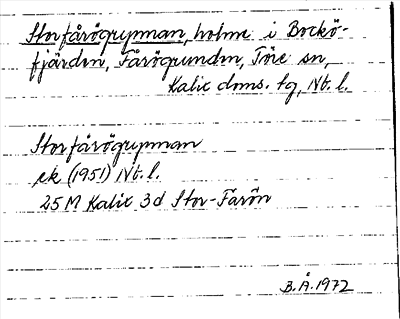 Storfårögrynnan, holme i Bockö-
fjärden, Fårögrunden, Töre sn,
Kalix doms. tg, Nb. l.
Storfårögrynnan
ek (1951) Nb. l.
25 M Kalix 3d Stor-Farön
B. Å. 1972